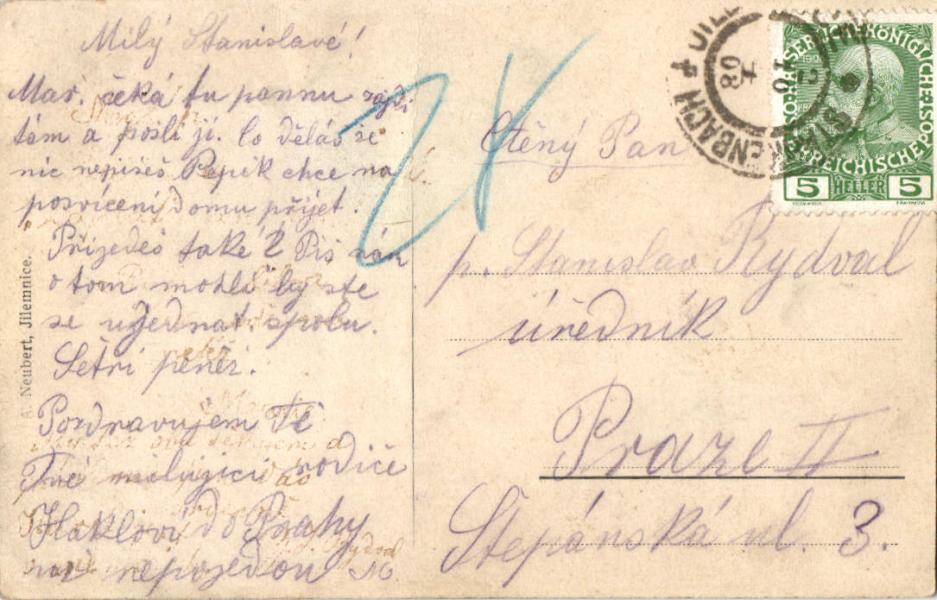 Milý Stanislavé!
Mař. čeká tu pannu zajdi
tám a pošli ji. Co děláš že
nic nepíšeš Pepík chce na
posvícení domu přijet.
Přijedeš také? Piš nám
o tom mohli by ste
se ujednat spolu.
Šetři peněz.
Pozdravujem Tě
Tvé milující rodiče
Haklovi do Prahy
nepojedou
A. Neubert, Jilemnice.
24
Ctěný Pan
p. Stanislav Rydval
úředník
Praze II
Štěpánská ul. 3.
STARKENBACH
08
KAISERLICHE KÖNIGLICHE ÖSTERREICHISCHE POST
5 HELLER 5